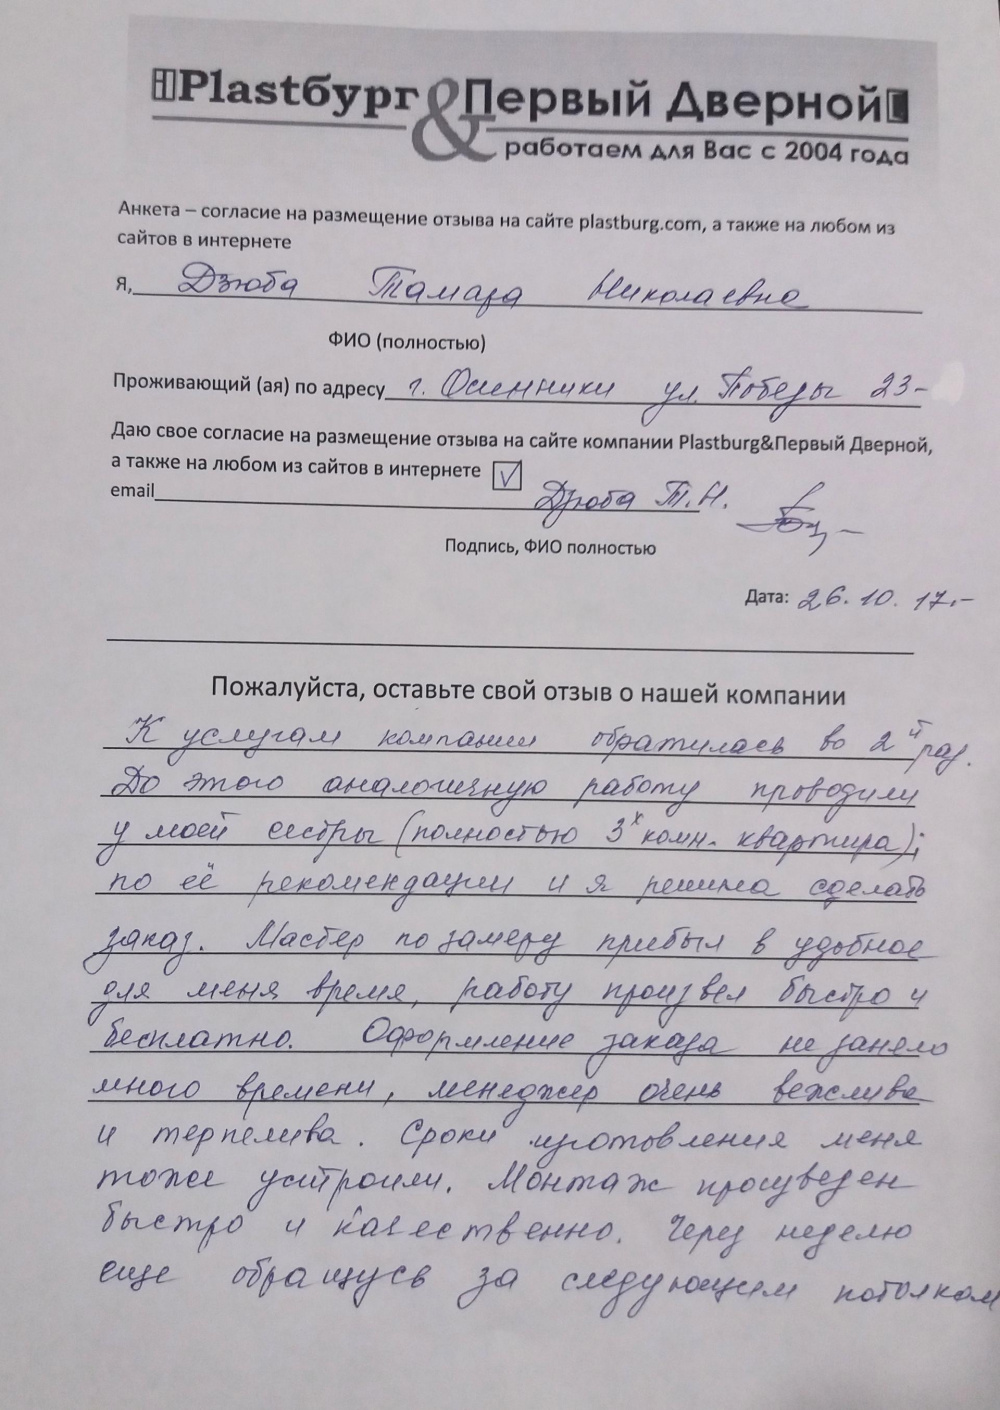 Plastбург & Первый Дверной
работаем для Вас с 2004 года
Анкета – согласие на размещение отзыва на сайте plastburg.com, а также на любом из
сайтов в интернете
Я, Дзюба Тамара Николаевна
ФИО (полностью)
Проживающий (ая) по адресу г. Осинники ул. Победы 23-
Даю свое согласие на размещение отзыва на сайте компании Plastburg&Первый Дверной,
а также на любом из сайтов в интернете ☑
email Дзюба Т.Н.
Подпись, ФИО полностью
Дата: 26.10.17.-
Пожалуйста, оставьте свой отзыв о нашей компании
К услугам компании обратилась во 2й раз.
До этого аналогичную работу проводили
у моей сестры (полностью 3х комн. квартира);
по её рекомендации и я решила сделать
заказ. Мастер по замеру прибыл в удобное
для меня время, работу произвел быстро и
бесплатно. Оформление заказа не заняло
много времени, менеджер очень вежлива
и терпелива. Сроки изготовления меня
тоже устроили. Монтаж произведен
быстро и качественно. Через неделю
еще обращусь за следующим потолком